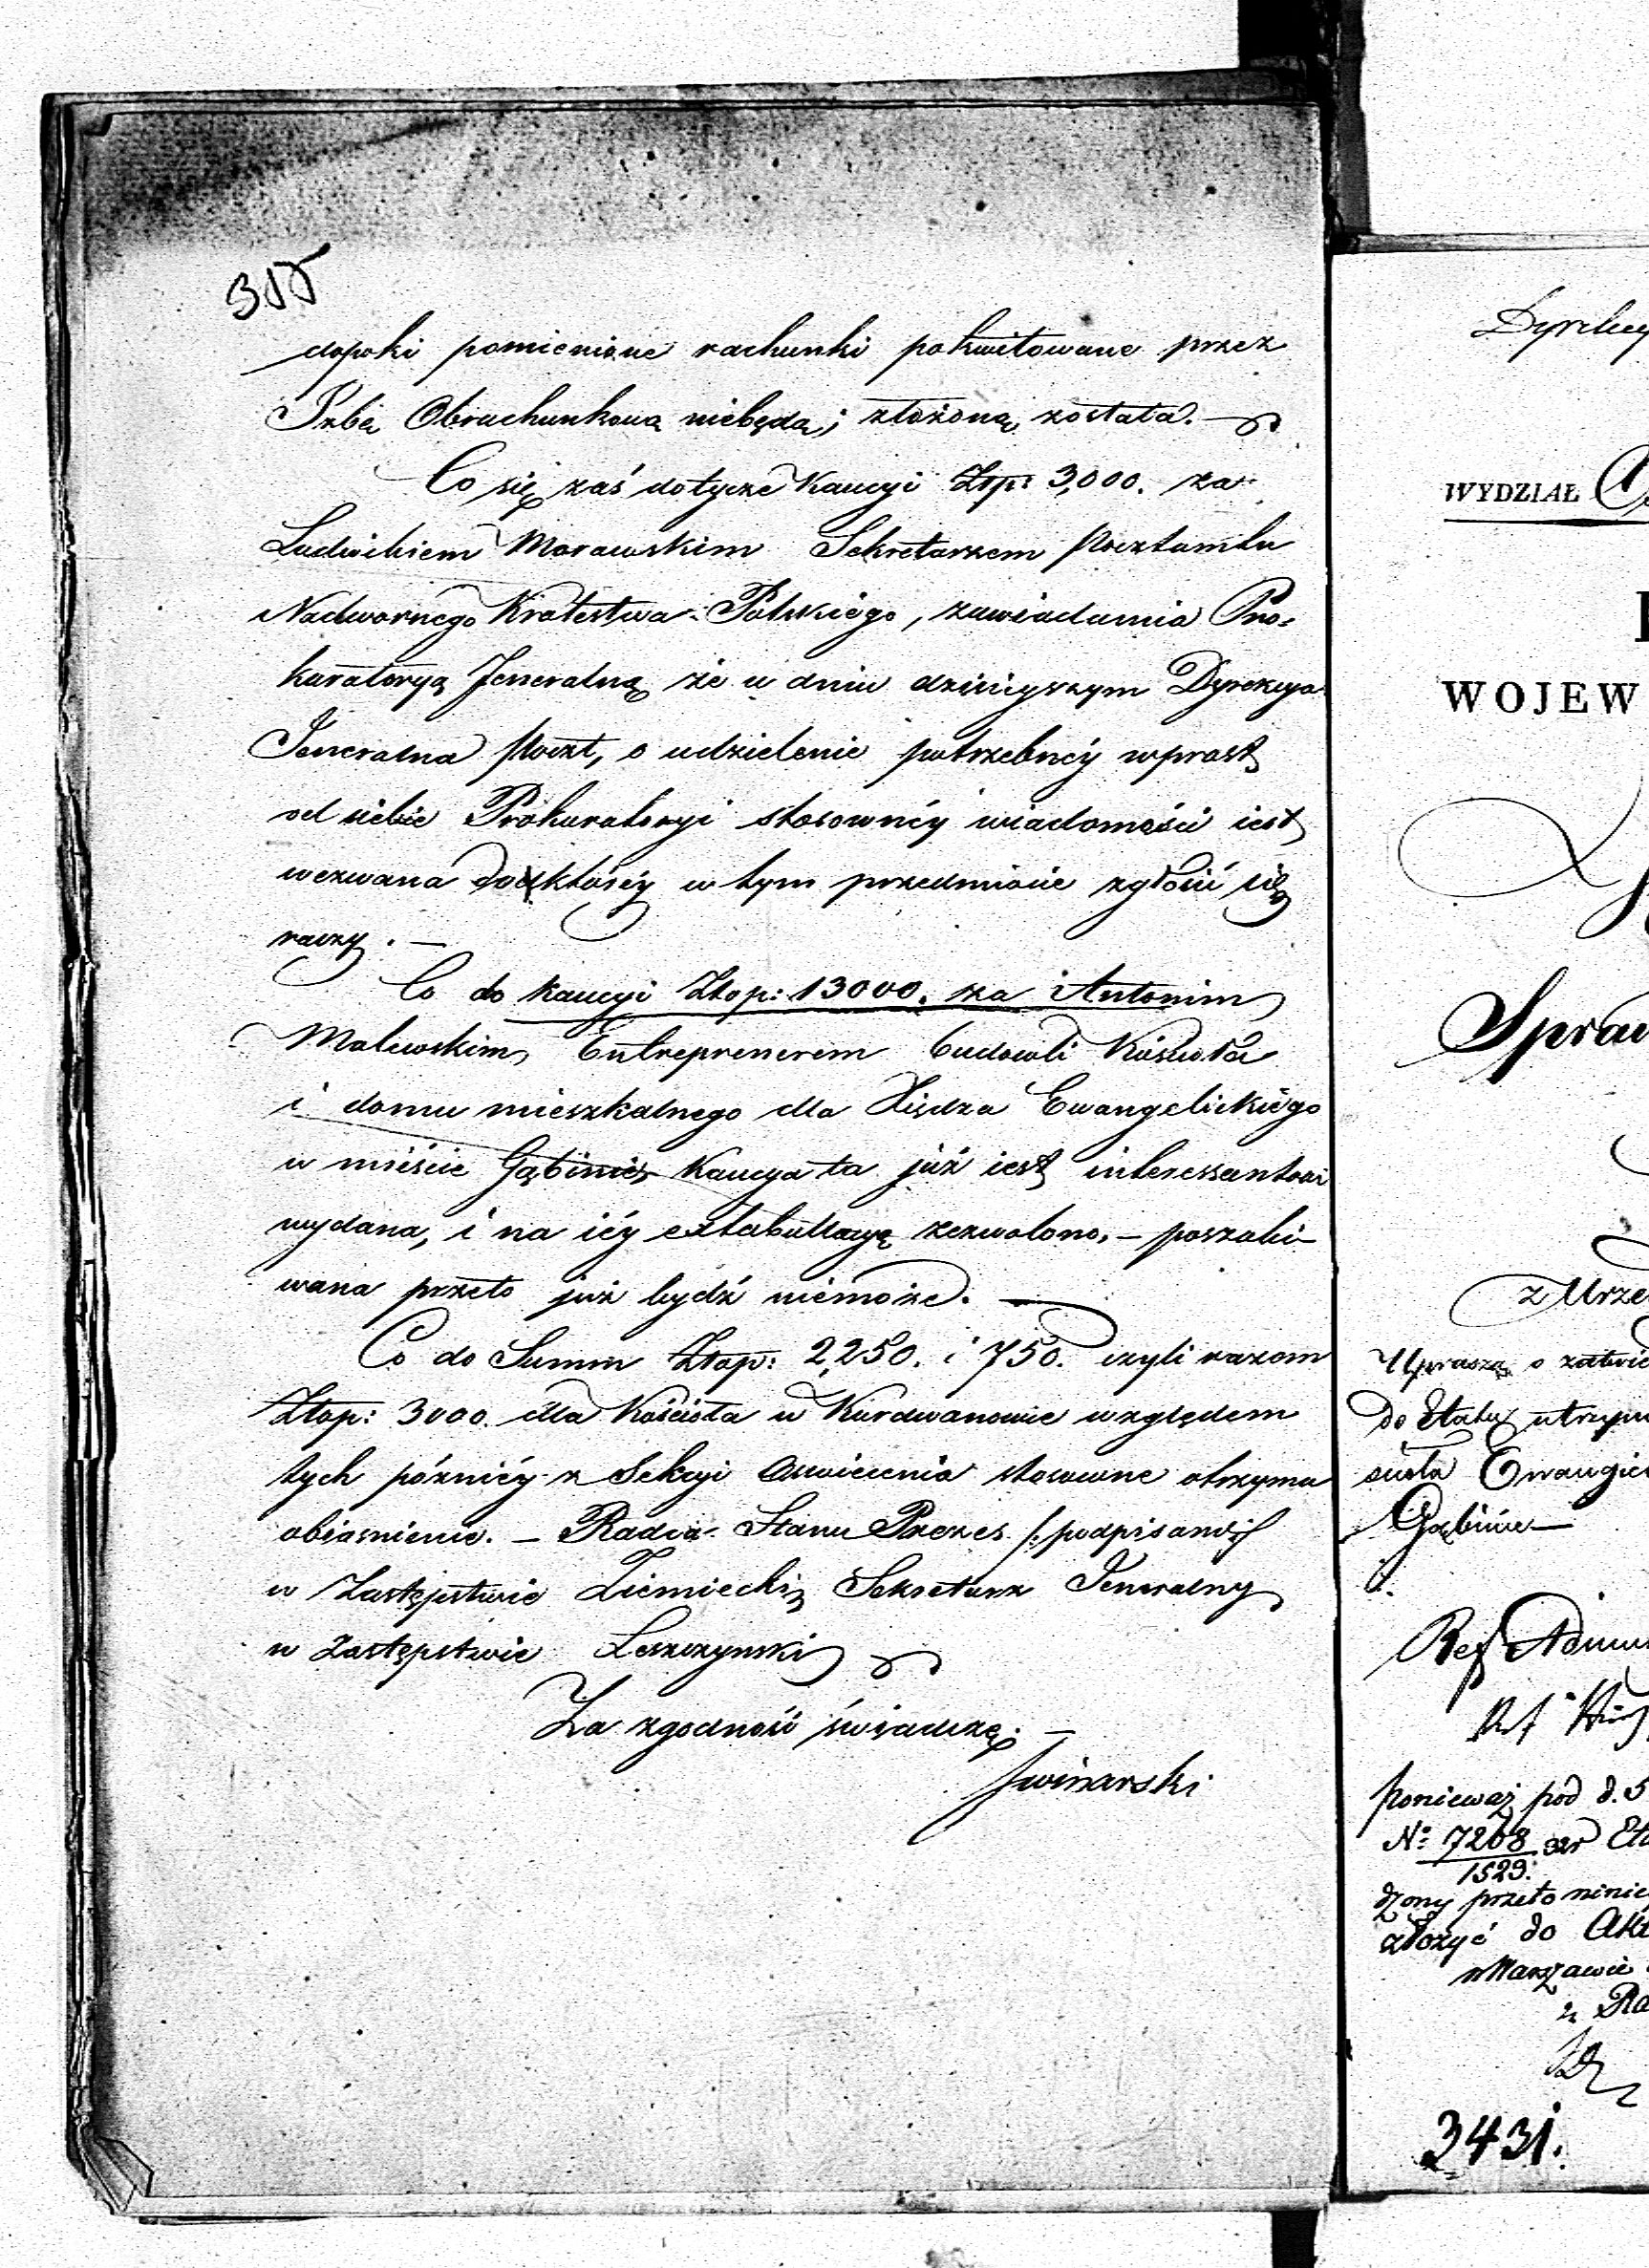 315
dopoki pomienione rachunki pokwitowane przez
Izbę Obrachunkową niebędą, złożoną została. —
Co się zaś dotycze Kaucyi Złop: 3,000. za
Ludwikiem Morawskim Sekretarzem Pocztamtu
Nadwornego Krolestwa Polskiego, zawiadamia Pro-
kuratoryą Jeneralną że w dniu dzisieyszym Dyrekcya
Jeneralna Poczt, o udzielenie potrzebnéy wprost
od siebie Prokuratoryi stosownéy wiadomości iest
wezwana do któréy w tym przedmiocie zgłosić się
raczy. —
Co do Kaucyi Złop: 13000. za Antonim
Malewskim Entreprenerem budowli Kościoła
i domu mieszkalnego dla Xiędza Ewangelickiego
w mieście Gąbinie, Kaucya ta już iest interessantowi
wydana, i na iéy extabullacyę zezwolono. — poszuki-
wana przeto już bydź niemoże. —
Co do Summ Złop: 2,250. i 750. czyli razem
Złop: 3000. dla Kościoła w Kurdwanowie względem
tych późniéy z Sekcyi Oswiecenia stosowne otrzyma
obiasnienie. — Radca Stanu Prezes /: podpisano :/
w Zastępstwie Ziemiecki, Sekretarz Jeneralny
w Zastępstwie Leszczynski
Za zgodność świadczę. —
Swinarski
WYDZIAŁ
WOJEW
Spraw
z Urzę
Upraszą o zatwie
do Etatu utrzym
ścioła Ewangie
Gąbinie —
Ref Admin
Ponieważ pod d. 5
No 7268
1529.
dzony przeto ninie
złożyć do Akt
w Warszawie
z Ra
3431.